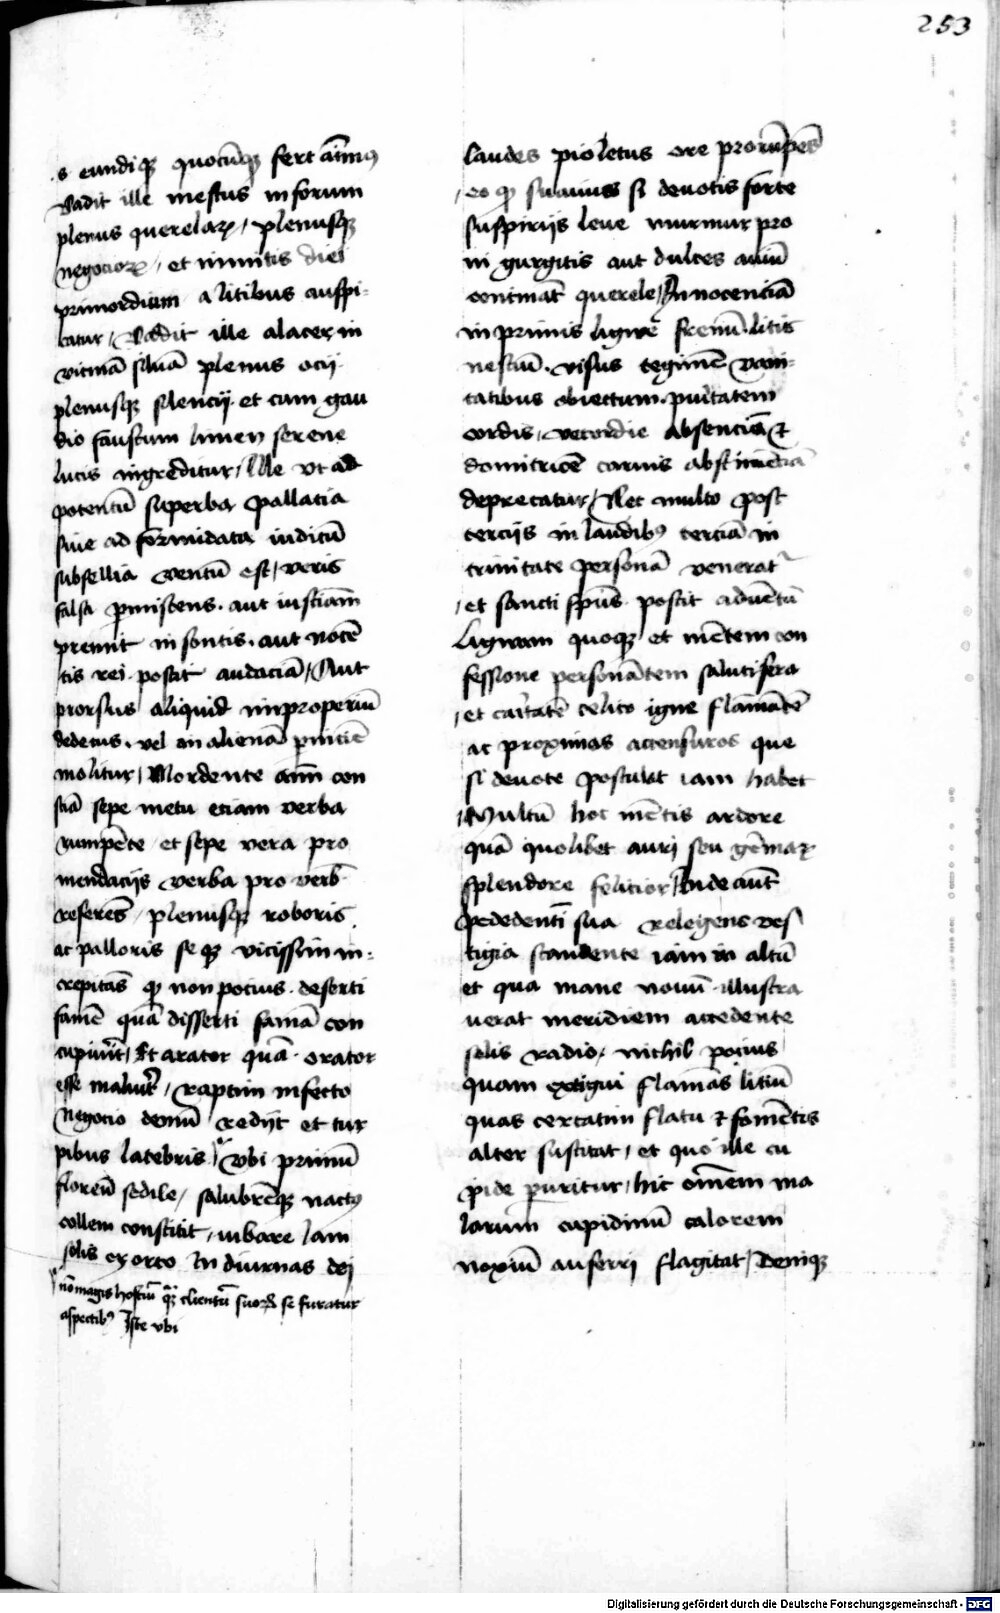 253
s eundiqꝫ quocūqꝫ fert aīmꝰ
Vadit ille mestus in forum
plenus querelaꝝ / plenusqꝫ
negocioꝝ / et inmitis diei
primordium a litibus auspi-
catur / Vadit ille alacer in
vicinā siluā plenus ocij
plenusqꝫ silencij. et cum gau
dio faustum limen serene
lucis ingreditur / Ille vt ad
potentū superba pallatia
siue ad formidata iudicū
subsellia ventū est / veris
falsa pmiscens. aut iusticiam
premit insontis. aut nocē
tis rei poscit audaciā / Aut
prorsus aliquid improperiū
dedecus. vel in alienā pnitiē
molitur / Mordente aīm con
sciā sepe metu etiam verba
rumpēte et sepe vera pro
mendacijs verba pro verb
referēs / plenusqꝫ roboris
ac palloris seqꝫ vicissim in-
crepitās ꝙ non pocius deserti
famē quā disserti famā con
cupiuīt / Et arator quā orator
esse maluīt / raptim infecto
negocio demū redijt et tur
pibus latebris / vbi primū
floreū sedile / salubrēqꝫ nactꝰ
collem constitit / iubare iam
solis exorto In diurnas dei
nō magis hostiū qꝫ clientū suoꝝ se furatur
aspectibꝰ Iste vbi
laudes pio letus ore prorūpēs
/ eo ꝙ suauius si deuotis forte
suspirijs leue murmur pro
ni gurgitis aut dulces auiū
contināt querele / Innocenciā
in primis ligue frenū litis
nesciū. visus tegimē vani-
tatibus obiectum. puritatem
cordis, vecordie absenciā et
domitricē carnis abstinētiā
deprecatur / Nec multo post
tercijs in laudibꝰ terciā in
trinitate personā venerat
/ et sancti spūs poscit aduētū
Liguam quoqꝫ et mētem con
fessione personātem salutifera
/ et caritatē celico igne flāmātē
ac proximos accensuros que
si deuote postulat iam habet
Multū hoc mētis ardore
quā quolibet auri seu gēmaꝝ
splendore felicior / Inde aūt
pededentī sua relegens ves
tigia scandente iam in altū
et qua mane nouū illustra
uerat meridiem accedente
solis radio, nichil pocius
quam extigui flāmas litiū
quas certatim flatu et fomētis
alter suscitat / et quo ille cu
pide puritur / hic omēm ma
larum cupidinū calorem
noxiū auferri flagitat / Deniqꝫ
Digitalisierung gefördert durch die Deutsche Forschungsgemeinschaft - DFG